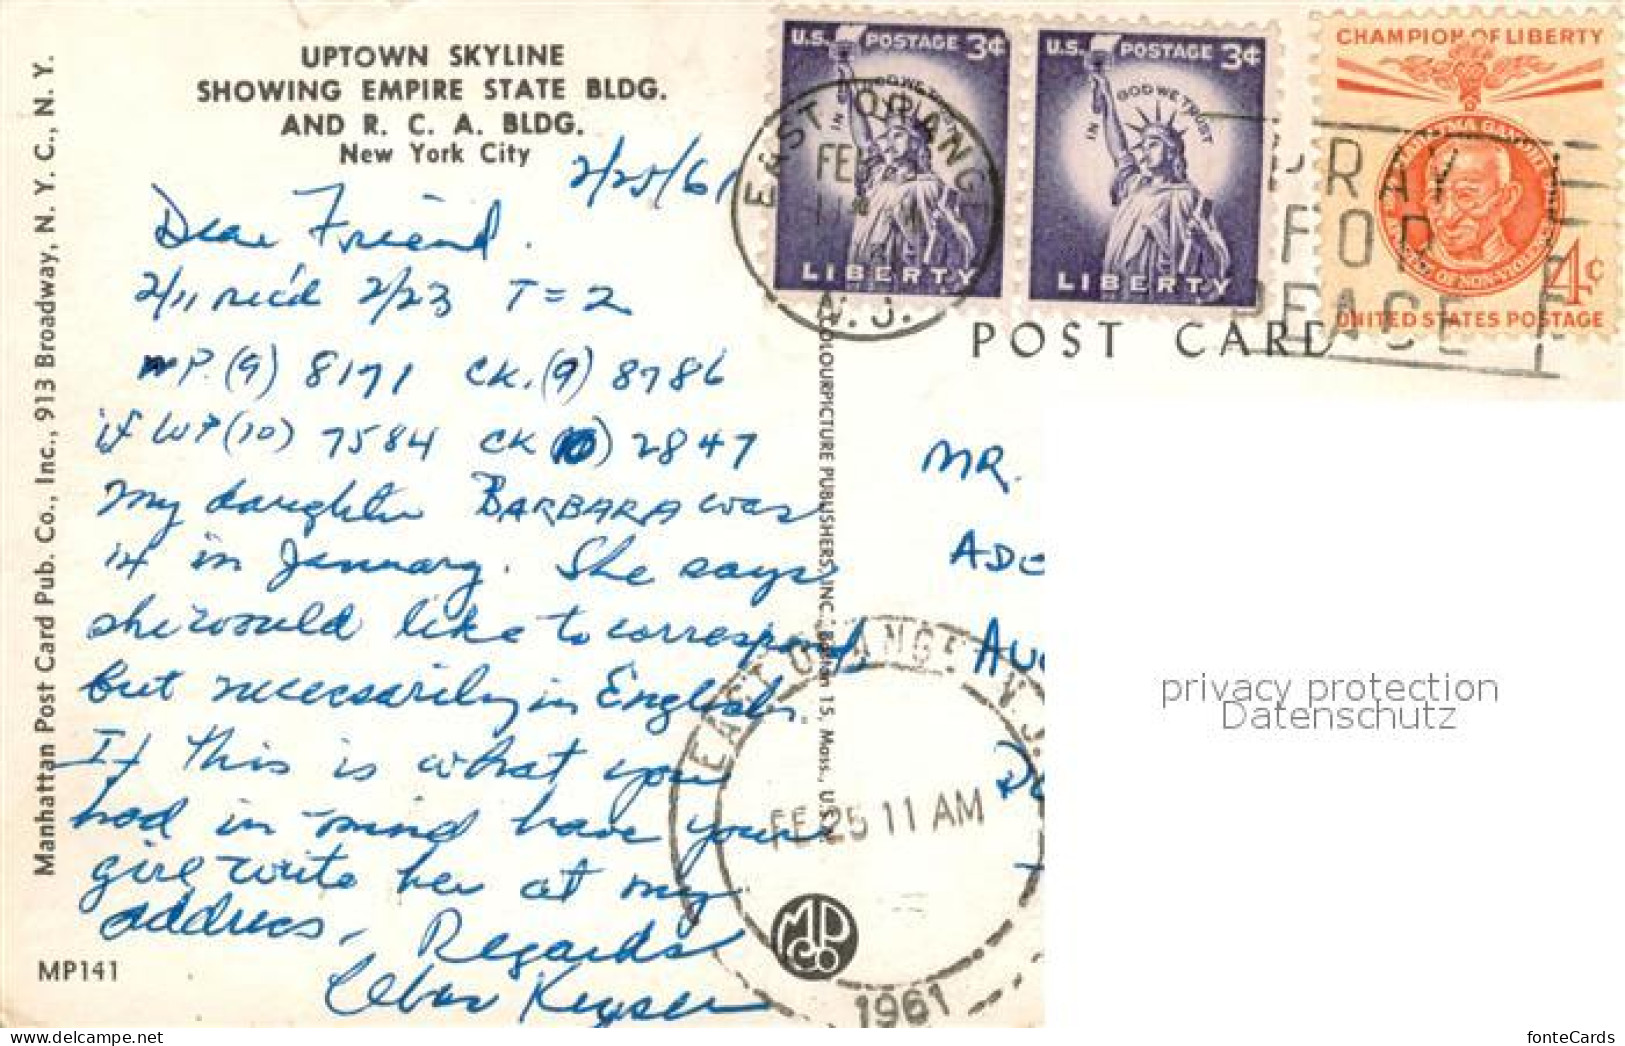 UPTOWN SKYLINE
SHOWING EMPIRE STATE BLDG.
AND R. C. A. BLDG.
New York City
2/25/61
Dear Friend.
2/11 rec'd 2/23 T = 2
WP. (9) 8171 CK. (9) 8786
if WP (10) 7584 CK (10) 2847
My daughter BARBARA was
14 in January. She says
she would like to correspond,
but necessarily in English.
If this is what you
had in mind have your
girl write her at my
address.
Regards
Keyser
Manhattan Post Card Pub. Co., Inc., 913 Broadway, N. Y. C., N. Y.
MP141
COLOURPICTURE PUBLISHERS, INC., Boston 15, Mass., U.S.A.
U.S. POSTAGE 3¢
IN GOD WE TRUST
LIBERTY
U.S. POSTAGE 3¢
IN GOD WE TRUST
LIBERTY
CHAMPION OF LIBERTY
4c
UNITED STATES POSTAGE
EAST ORANGE
FEB
N. J.
PRAY
FOR
PEACE
POST CARD
MR.
ADE
AUC
EAST ORANGE N.J.
FE 25 11 AM
1961
MP
Co
privacy protection
Datenschutz
fonteCards